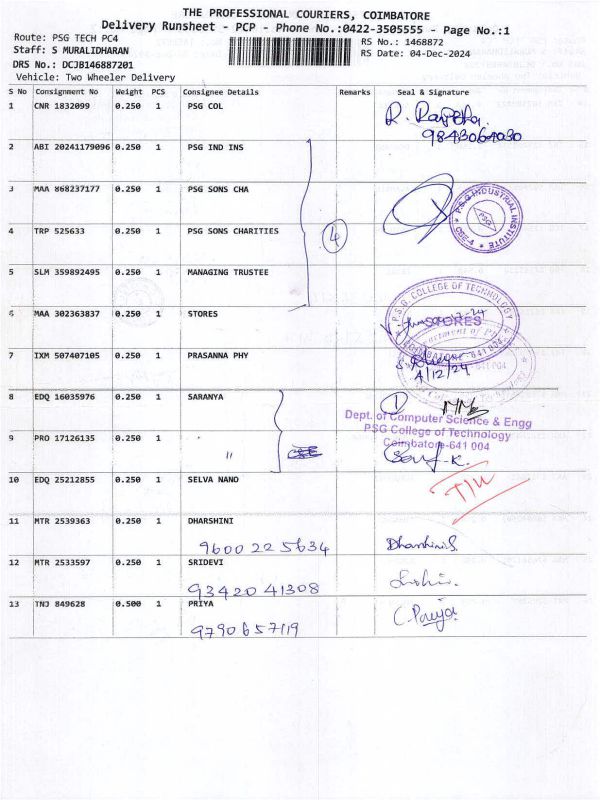 THE PROFESSIONAL COURIERS, COIMBATORE
Delivery Runsheet - PCP - Phone No.:0422-3505555 - Page No.:1
Route: PSG TECH PC4
RS No.: 1468872
Staff: S MURALIDHARAN
RS Date: 04-Dec-2024
DRS No.: DCJB146887201
Vehicle: Two Wheeler Delivery
S No Consignment No Weight PCS Consignee Details Remarks Seal & Signature
1 CNR 1832099 0.250 1 PSG COL
9843064030
2 ABI 20241179096 0.250 1 PSG IND INS
3 MAA 868237177 0.250 1 PSG SONS CHA
P.S.G INDUSTRIAL INSTITUTE
PSG
CBE-4
4 TRP 525633 0.250 1 PSG SONS CHARITIES
4
5 SLM 359892495 0.250 1 MANAGING TRUSTEE
6 MAA 302363837 0.250 1 STORES
P.S.G. COLLEGE OF TECHNOLOGY
STORES
7 IXM 507407105 0.250 1 PRASANNA PHY
4/12/24
8 EDQ 16035976 0.250 1 SARANYA
1
Dept. of Computer Science & Engg
PSG College of Technology
Coimbatore-641 004
9 PRO 17126135 0.250 1 "
CSE
10 EDQ 25212855 0.250 1 SELVA NANO
11 MTR 2539363 0.250 1 DHARSHINI
9600225634 Dharshini.S.
12 MTR 2533597 0.250 1 SRIDEVI
9342041308
13 TNJ 849628 0.500 1 PRIYA
9790657119 C. Priya